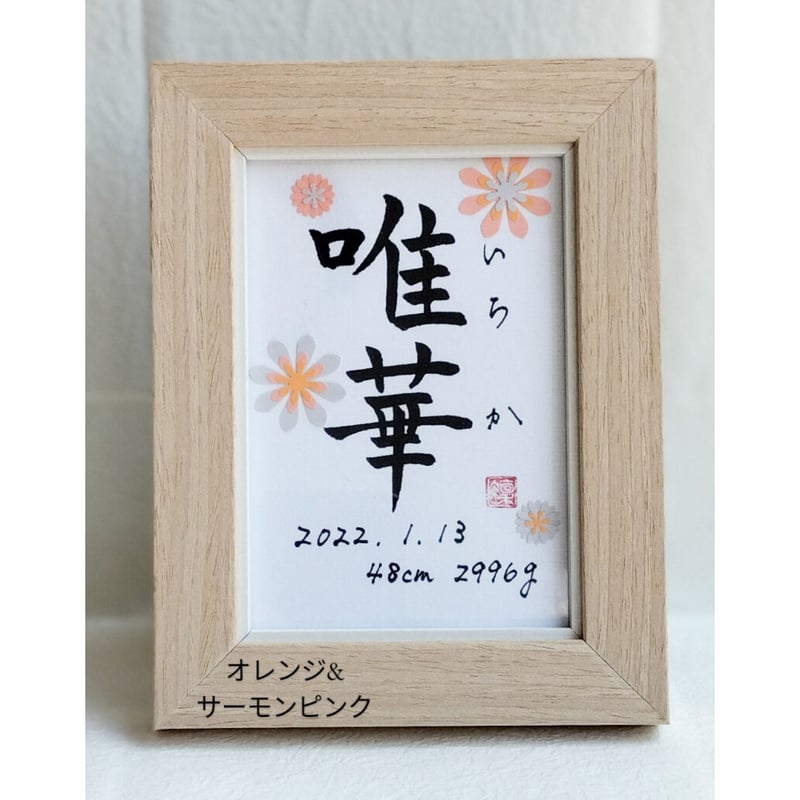 唯華
いちか
2022.1.13
48cm 2996g
オレンジ&
サーモンピンク